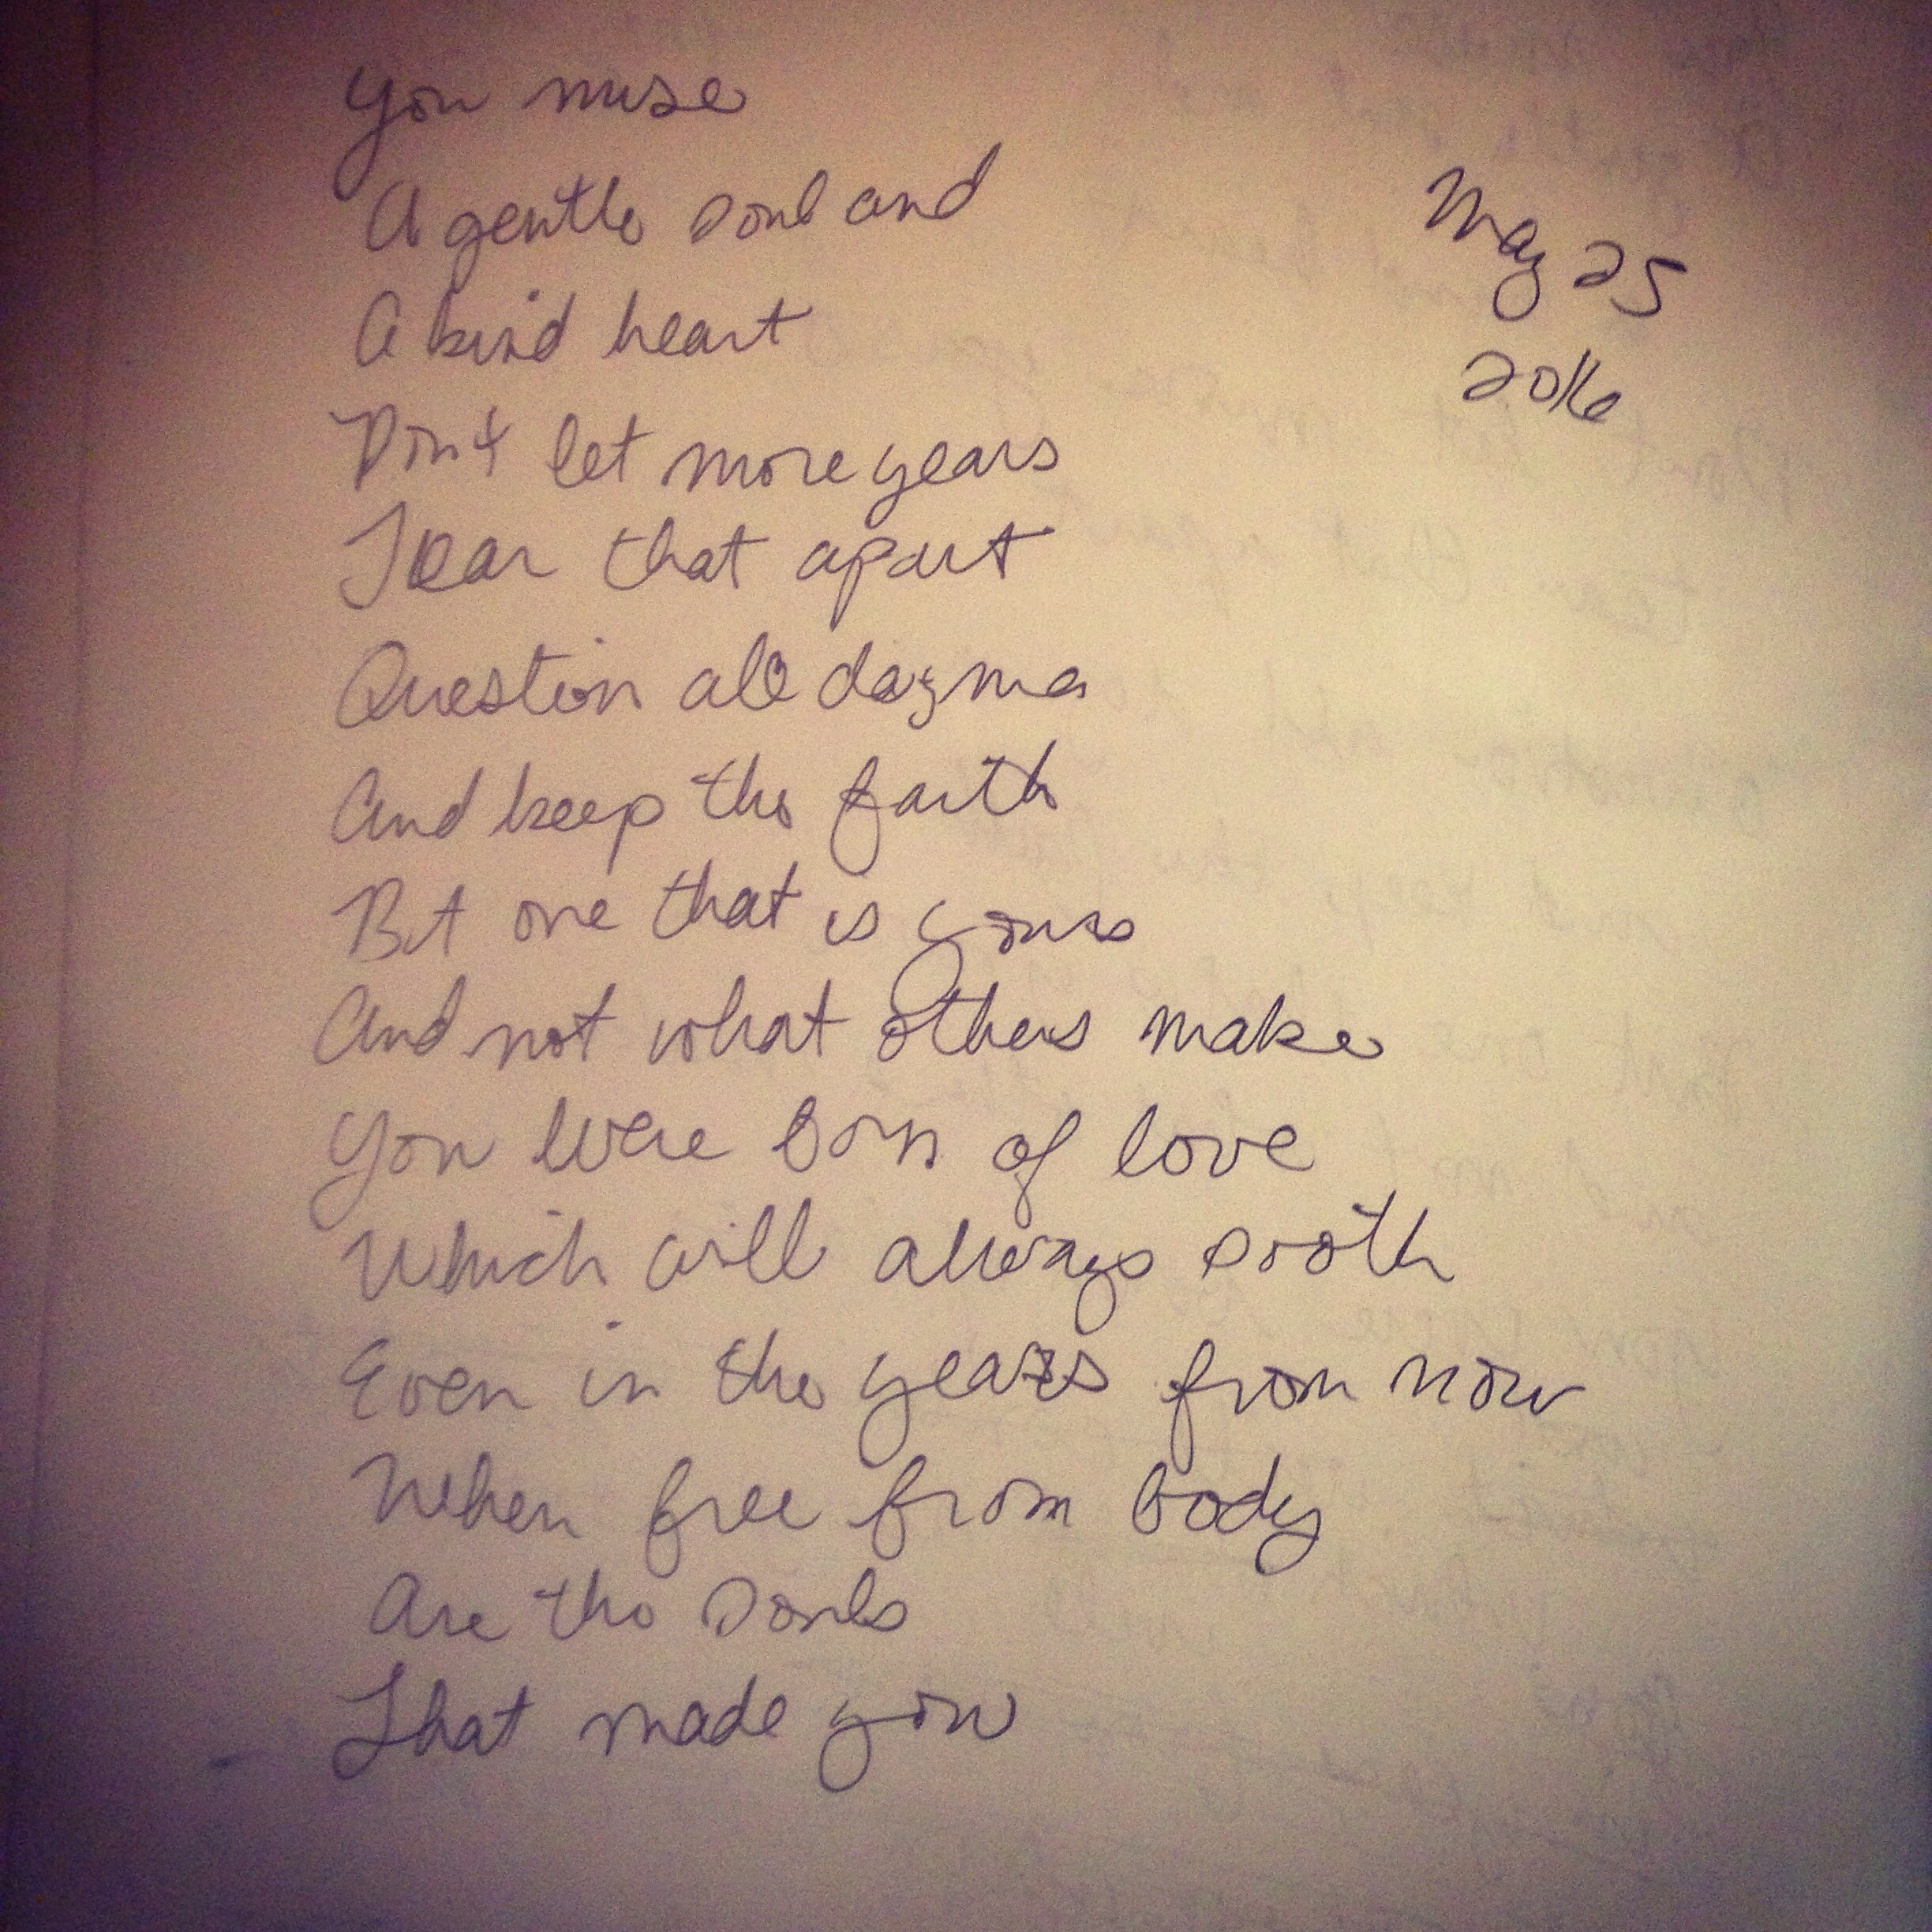 You muse
A gentle soul and
A kind heart
Don't let more years
Tear that apart
Question all dogma
And keep the faith
But one that is yours
And not what others make
You were born of love
Which will always sooth
Even in the years from now
When free from body
Are the souls
That made you
May 25
2016